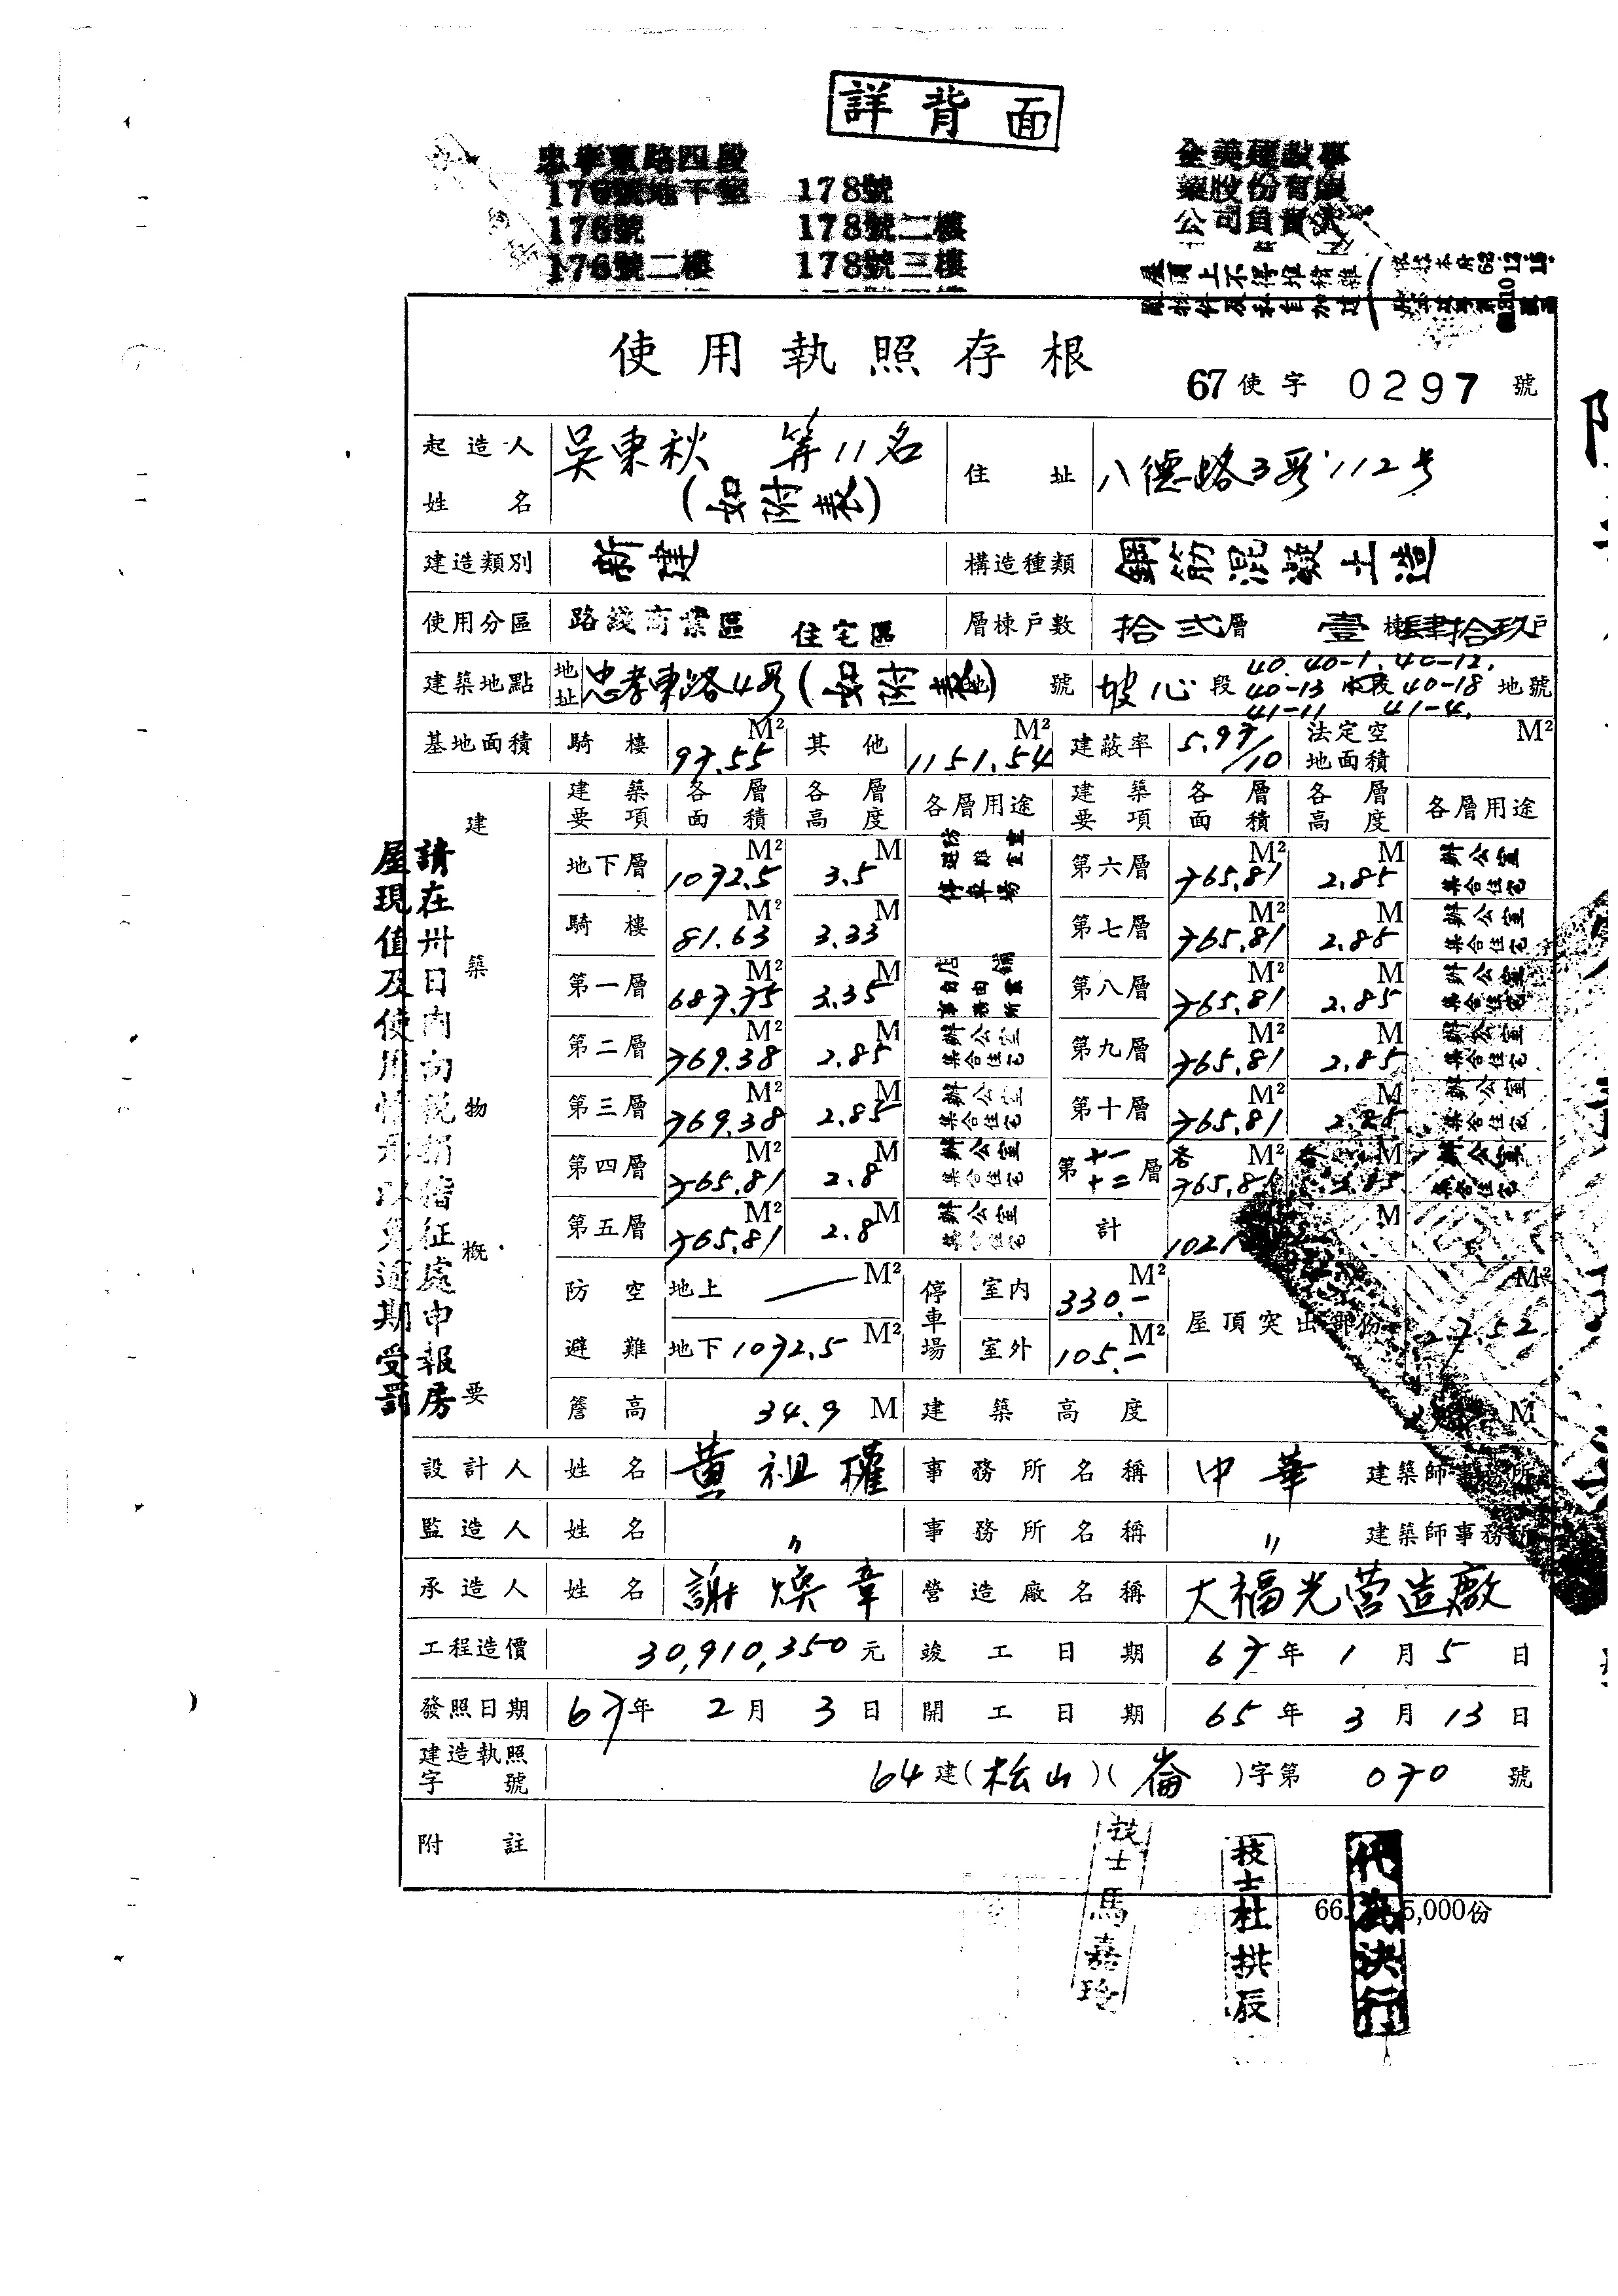 詳背面
忠孝東路四段
176號地下室 178號
176號 178號二樓
176號二樓 178號三樓
全美建設事
業股份有限
公司負責人
屋頂上不得堆積雜
使用執照存根
67使字 0297 號
起造人姓名 吳東秋 等11名 (如附表) 住址 八德路3段112号
建造類別 新建 構造種類 鋼筋混凝土造
使用分區 路綫商業區 住宅區 層棟戶數 拾弍層 壹棟肆拾玖戶
建築地點 地址 忠孝東路4段 地號 坡心段 40. 40-1. 40-12. 40-13 40-18 41-11 41-4. 地號
基地面積 騎樓 97.55 M² 其他 1151.54 M² 建蔽率 5.97/10 法定空地面積 M²
建築物概要
建築要項 各層面積 各層高度 各層用途 建築要項 各層面積 各層高度 各層用途
地下層 1072.5 M² 3.5 M 防空避難室 停車場 第六層 765.81 M² 2.85 M 辦公室 集合住宅
騎樓 81.63 M² 3.33 M 第七層 765.81 M² 2.85 M 辦公室 集合住宅
第一層 687.75 M² 3.35 M 店舖 自由業事務所 第八層 765.81 M² 2.85 M 辦公室 集合住宅
第二層 769.38 M² 2.85 M 辦公室 集合住宅 第九層 765.81 M² 2.85 M 辦公室 集合住宅
第三層 769.38 M² 2.85 M 辦公室 集合住宅 第十層 765.81 M² 2.85 M 辦公室 集合住宅
第四層 765.81 M² 2.8 M 辦公室 集合住宅 第十一十二層 各765.81 M² 2.85 M 辦公室 集合住宅
第五層 765.81 M² 2.8 M 辦公室 集合住宅 計 M
防空避難 地上 — M² 停車場 室內 330.— M² 屋頂突出部份 M²
地下 1072.5 M² 室外 105.— M²
簷高 34.9 M 建築高度 M
設計人 姓名 黃祖權 事務所名稱 中華 建築師事務所
監造人 姓名 〃 事務所名稱 〃 建築師事務所
承造人 姓名 謝煥章 營造廠名稱 大福光營造廠
工程造價 30,910,350元 竣工日期 67年1月5日
發照日期 67年2月3日 開工日期 65年3月13日
建造執照字號 64建(松山)(崙)字第 070 號
附註
請在卅日內向稅捐稽征處申報房
屋現值及使用情形以免逾期受罰
技士馬嘉玲
技士杜拱辰
代為決行
5,000份